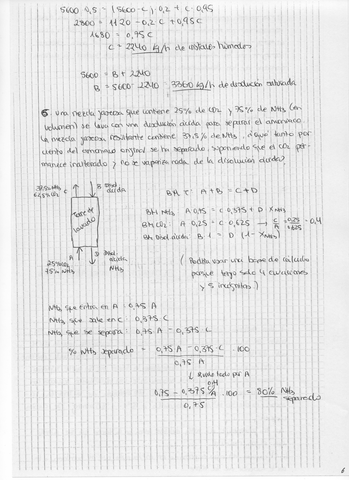 5600·0,5 = (5600-C)·0,2 + C·0,95
2800 = 1120 - 0,2 C + 0,95 C
1680 = 0,75 C
C = 2240 kg/h de cristales húmedos
5600 = B + 2240
B = 5600 - 2240 3360 kg/h de disolución saturada
6 Una mezcla gaseosa que contiene 25% de CO2 y 75% de NH3 (en
volumen) se lava con una disolución ácida para separar el amoniaco.
La mezcla gaseosa resultante contiene 37,5% de NH3. ¿Qué tanto por
ciento del amoniaco original se ha separado, suponiendo que el CO2 per-
manece inalterado y no se vaporiza nada de la disolución ácida?
37,5% NH3
62,5% CO2
C
B Disol.
ácida
Torre de
lavado
A
25% CO2
75% NH3
D Disol.
ácida
NH3
BM T: A + B = C + D
BM NH3 A 0,75 = C 0,375 + D XNH3
BM CO2 A 0,25 = C 0,625 → C/A = 0,25/0,625 = 0,4
BM Disol. ácida B·1 = D (1 - XNH3)
(Podría usar una base de cálculo
porque tengo solo 4 ecuaciones
y 5 incógnitas.)
NH3 que entra en A : 0,75 A
NH3 que sale en C : 0,375 C
NH3 que se separa : 0,75 A - 0,375 C
% NH3 separado = 0,75 A - 0,375 C / 0,75 A · 100
todo por A
0,75 - 0,375 C/A 0,4 / 0,75 · 100 = 80% NH3
separado
6